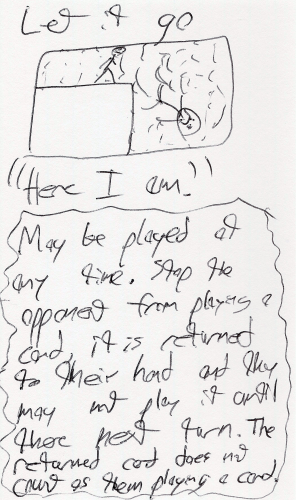 Let it go
"Here I am."
May be played at
any time. Stop the
opponent from playing a
card, it is returned
to their hand and they
may not play it until
there next turn. The
returned card does not
count as them playing a card.